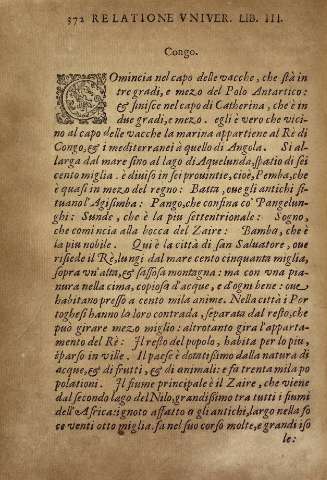 372 RELATIONE VNIVER. LIB. III.
Congo.
COmincia nel capo delle vacche, che stà in
tre gradi, e mezo del Polo Antartico:
& finisce nel capo di Catherina, che è in
due gradi, e mezo. egli è vero che vici-
no al capo delle vacche la marina appartiene al Rè di
Congo, & i mediterranei à quello di Angola. Si al-
larga dal mare sino al lago di Aquelunda, spatio di sei
cento miglia. è diuiso in sei prouintie, cioè, Pemba, che
è quasi in mezo del regno: Batta, oue gli antichi si-
tuano l'Agisimba: Pango, che confina co' Pangelun-
ghi: Sunde, che è la piu settentrionale: Sogno,
che comincia alla bocca del Zaire: Bamba, che è
la piu nobile. Qui è la città di san Saluatore, oue
risiede il Rè, lungi dal mare cento cinquanta miglia,
sopra vn'alta, & sassosa montagna: ma con vna pia-
nura nella cima, copiosa d'acque, e d'ogni bene: oue
habitano presso a cento mila anime. Nella città i Por
toghesi hanno la loro contrada, separata dal resto, che
può girare mezo miglio: altrotanto gira l'apparta-
mento del Rè: Il resto del popolo, habita per lo piu,
sparso in ville. Il paese è dotatissimo dalla natura di
acque, & di frutti, & di animali: e fa trenta mila po
polationi. Il fiume principale è il Zaire, che viene
dal secondo lago del Nilo, grandissimo tra tutti i fiumi
dell'Africa: ignoto affatto a gli antichi, largo nella fo
ce venti otto miglia. fa nel suo corso molte, e grandi iso
le: